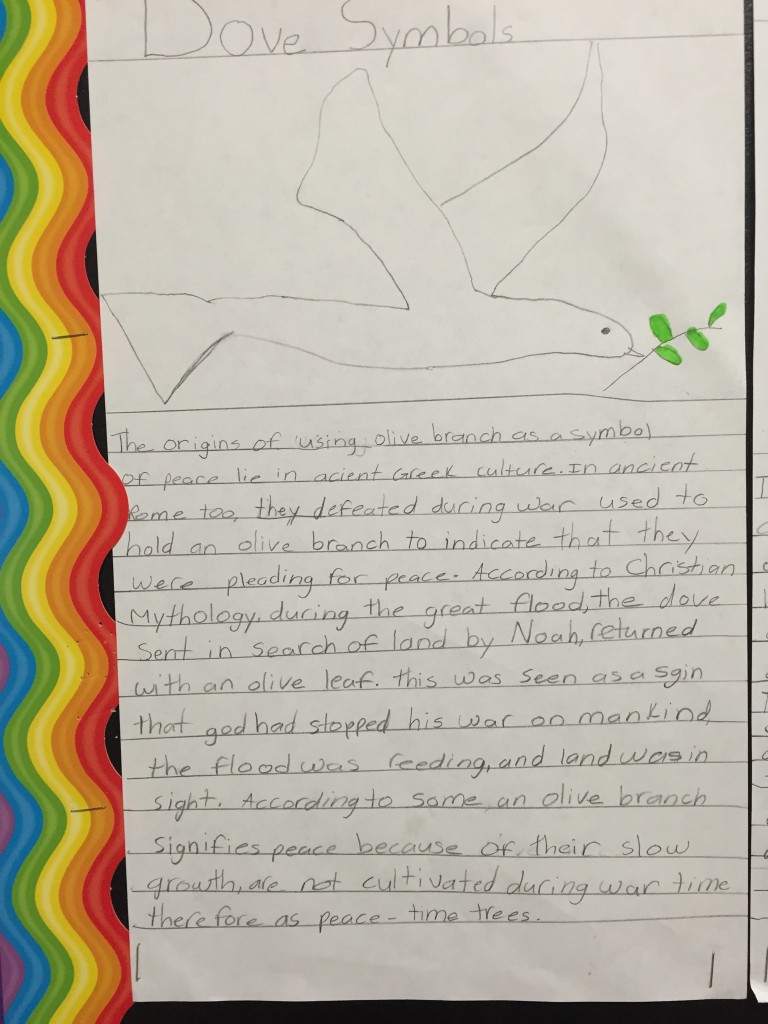 Dove Symbols
The origins of using olive branch as a symbol
of peace lie in acient Greek culture. In ancient
Rome too, they defeated during war used to
hold an olive branch to indicate that they
were pleading for peace. According to Christian
Mythology, during the great flood, the dove
Sent in search of land by Noah, returned
with an olive leaf. this was seen as a sgin
that god had stopped his war on mankind,
the flood was reeding, and land was in
sight. According to some an olive branch
signifies peace because of their slow
growth, are not cultivated during war time
therefore as peace-time trees.